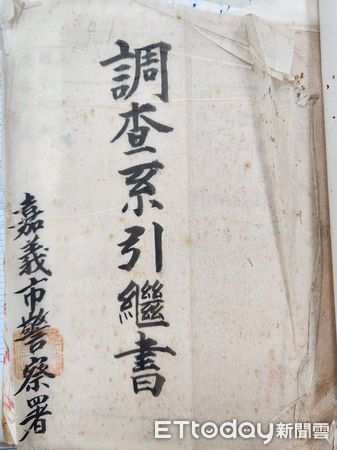 調查系引繼書
嘉義市警察署
ETtoday新聞雲